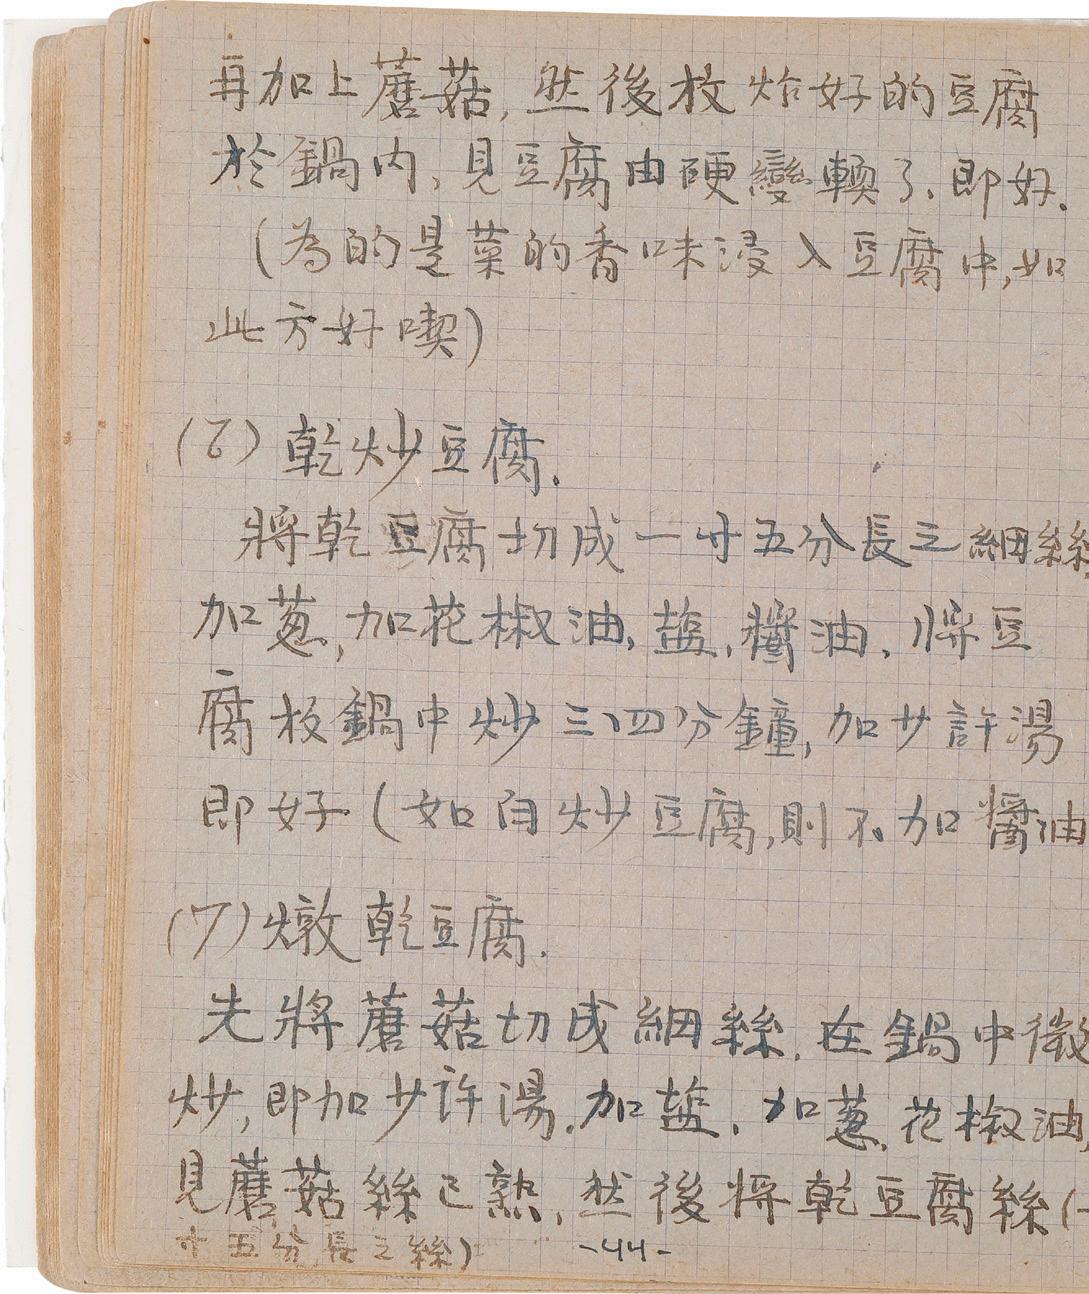 再加上蘑菇,然後放炸好的豆腐
於鍋内,見豆腐由硬變軟了,即好.
(為的是菜的香味浸入豆腐中,如
此方好喫)
(6)乾炒豆腐.
將乾豆腐切成一寸五分長之細絲
加葱,加花椒油,塩,醬油,將豆
腐放鍋中炒三、四分鐘,加少許湯
即好(如白炒豆腐,則不加醬油
(7)燉乾豆腐.
先將蘑菇切成細絲,在鍋中微
炒,即加少許湯.加塩,加葱,花椒油,
見蘑菇絲已熟,然後將乾豆腐絲(一
寸五分長之絲)
-44-